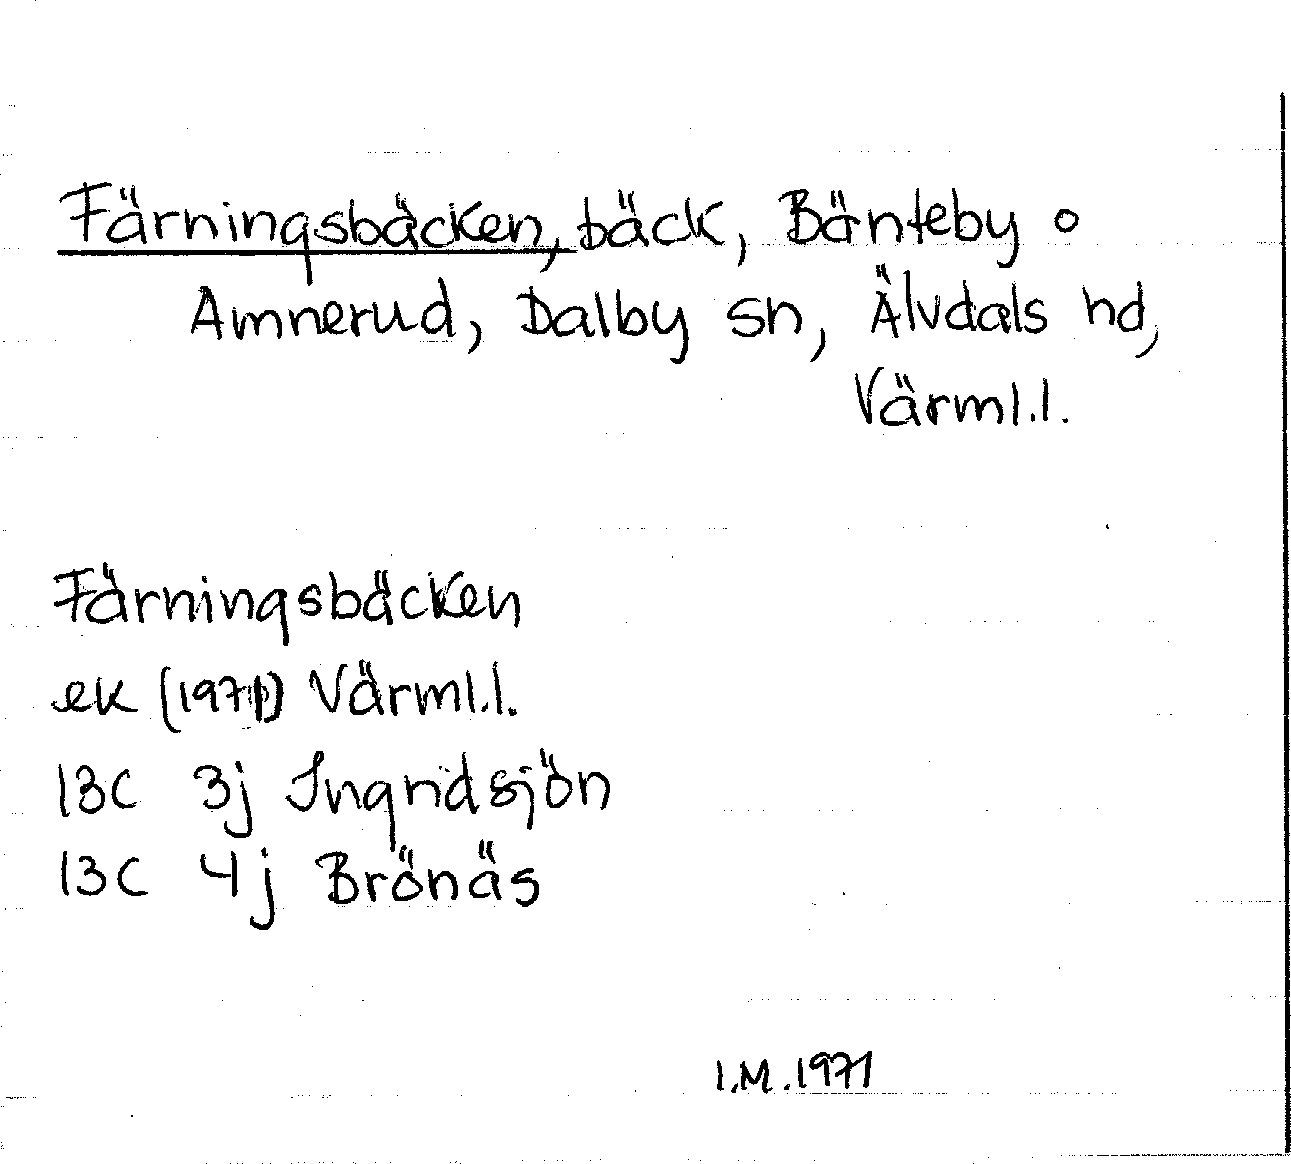 Färningsbäcken, bäck, Bänteby o
Amnerud, Dalby sn, Älvdals hd,
Värml.l.
Färningsbäcken
ek (1971) Värml.l.
13C 3j Ingridsjön
13C 4j Brönäs
I.M.1971